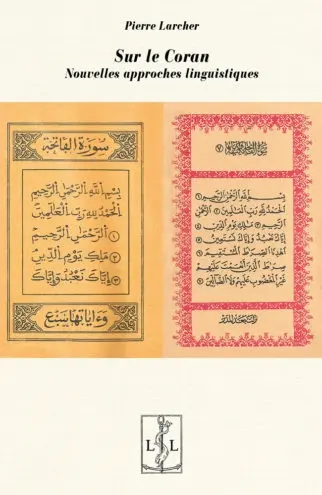 Pierre Larcher
Sur le Coran
Nouvelles approches linguistiques
سورة الفاتحة
بسم الله الرحمن الرحيم
الحمد لله رب العالمين
الرحمن الرحيم ١
ملك يوم الدين ٢
إياك نعبد وإياك ٣
وءاياتها سبع
٧
بسم الله الرحمن الرحيم
الحمد لله رب العالمين الرحمن
الرحيم ملك يوم الدين
إياك نعبد وإياك نستعين
اهدنا الصراط المستقيم
صراط الذين أنعمت عليهم
غير المغضوب عليهم ولا الضالين
L L